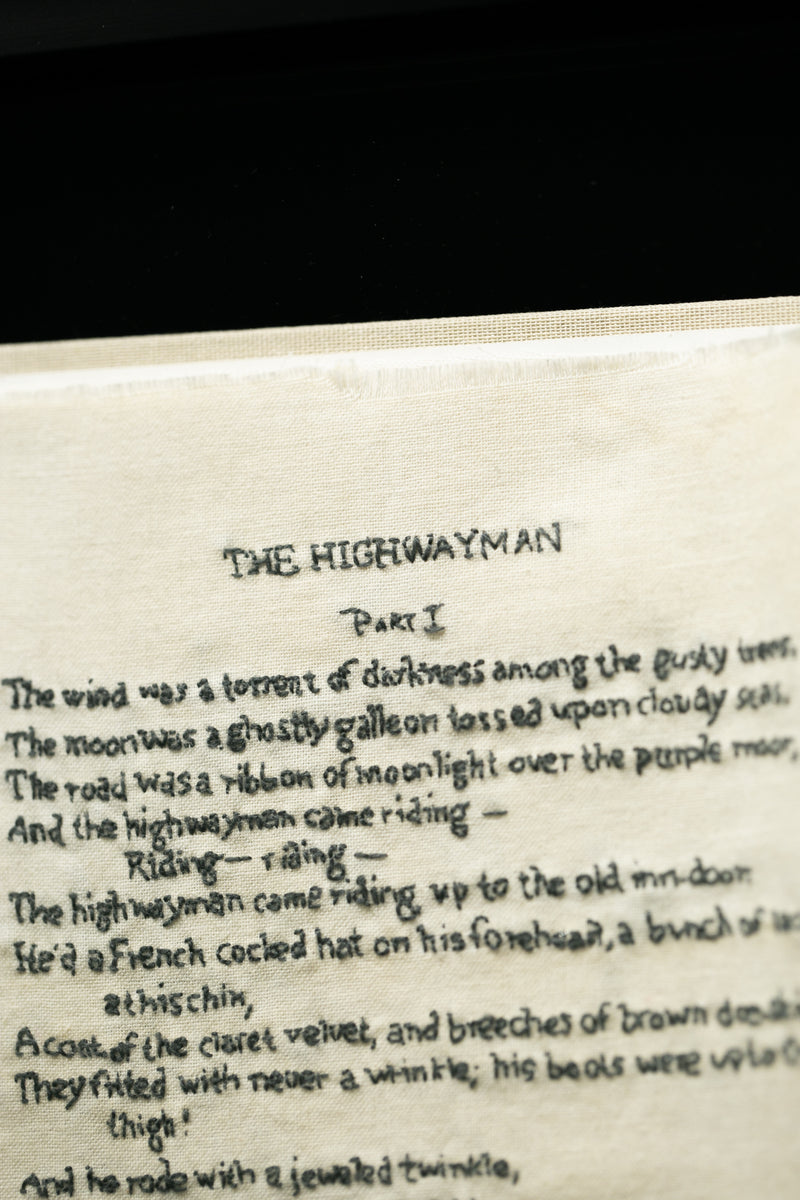 THE HIGHWAYMAN
PART I
The wind was a torrent of darkness among the gusty trees.
The moon was a ghostly galleon tossed upon cloudy seas.
The road was a ribbon of moonlight over the purple moor,
And the highwayman came riding —
Riding — riding —
The highwayman came riding, up to the old inn-door.
He'd a French cocked hat on his forehead, a bunch of
at his chin,
A coat of the claret velvet, and breeches of brown
They fitted with never a wrinkle; his boots were up to
thigh!
And he rode with a jeweled twinkle,